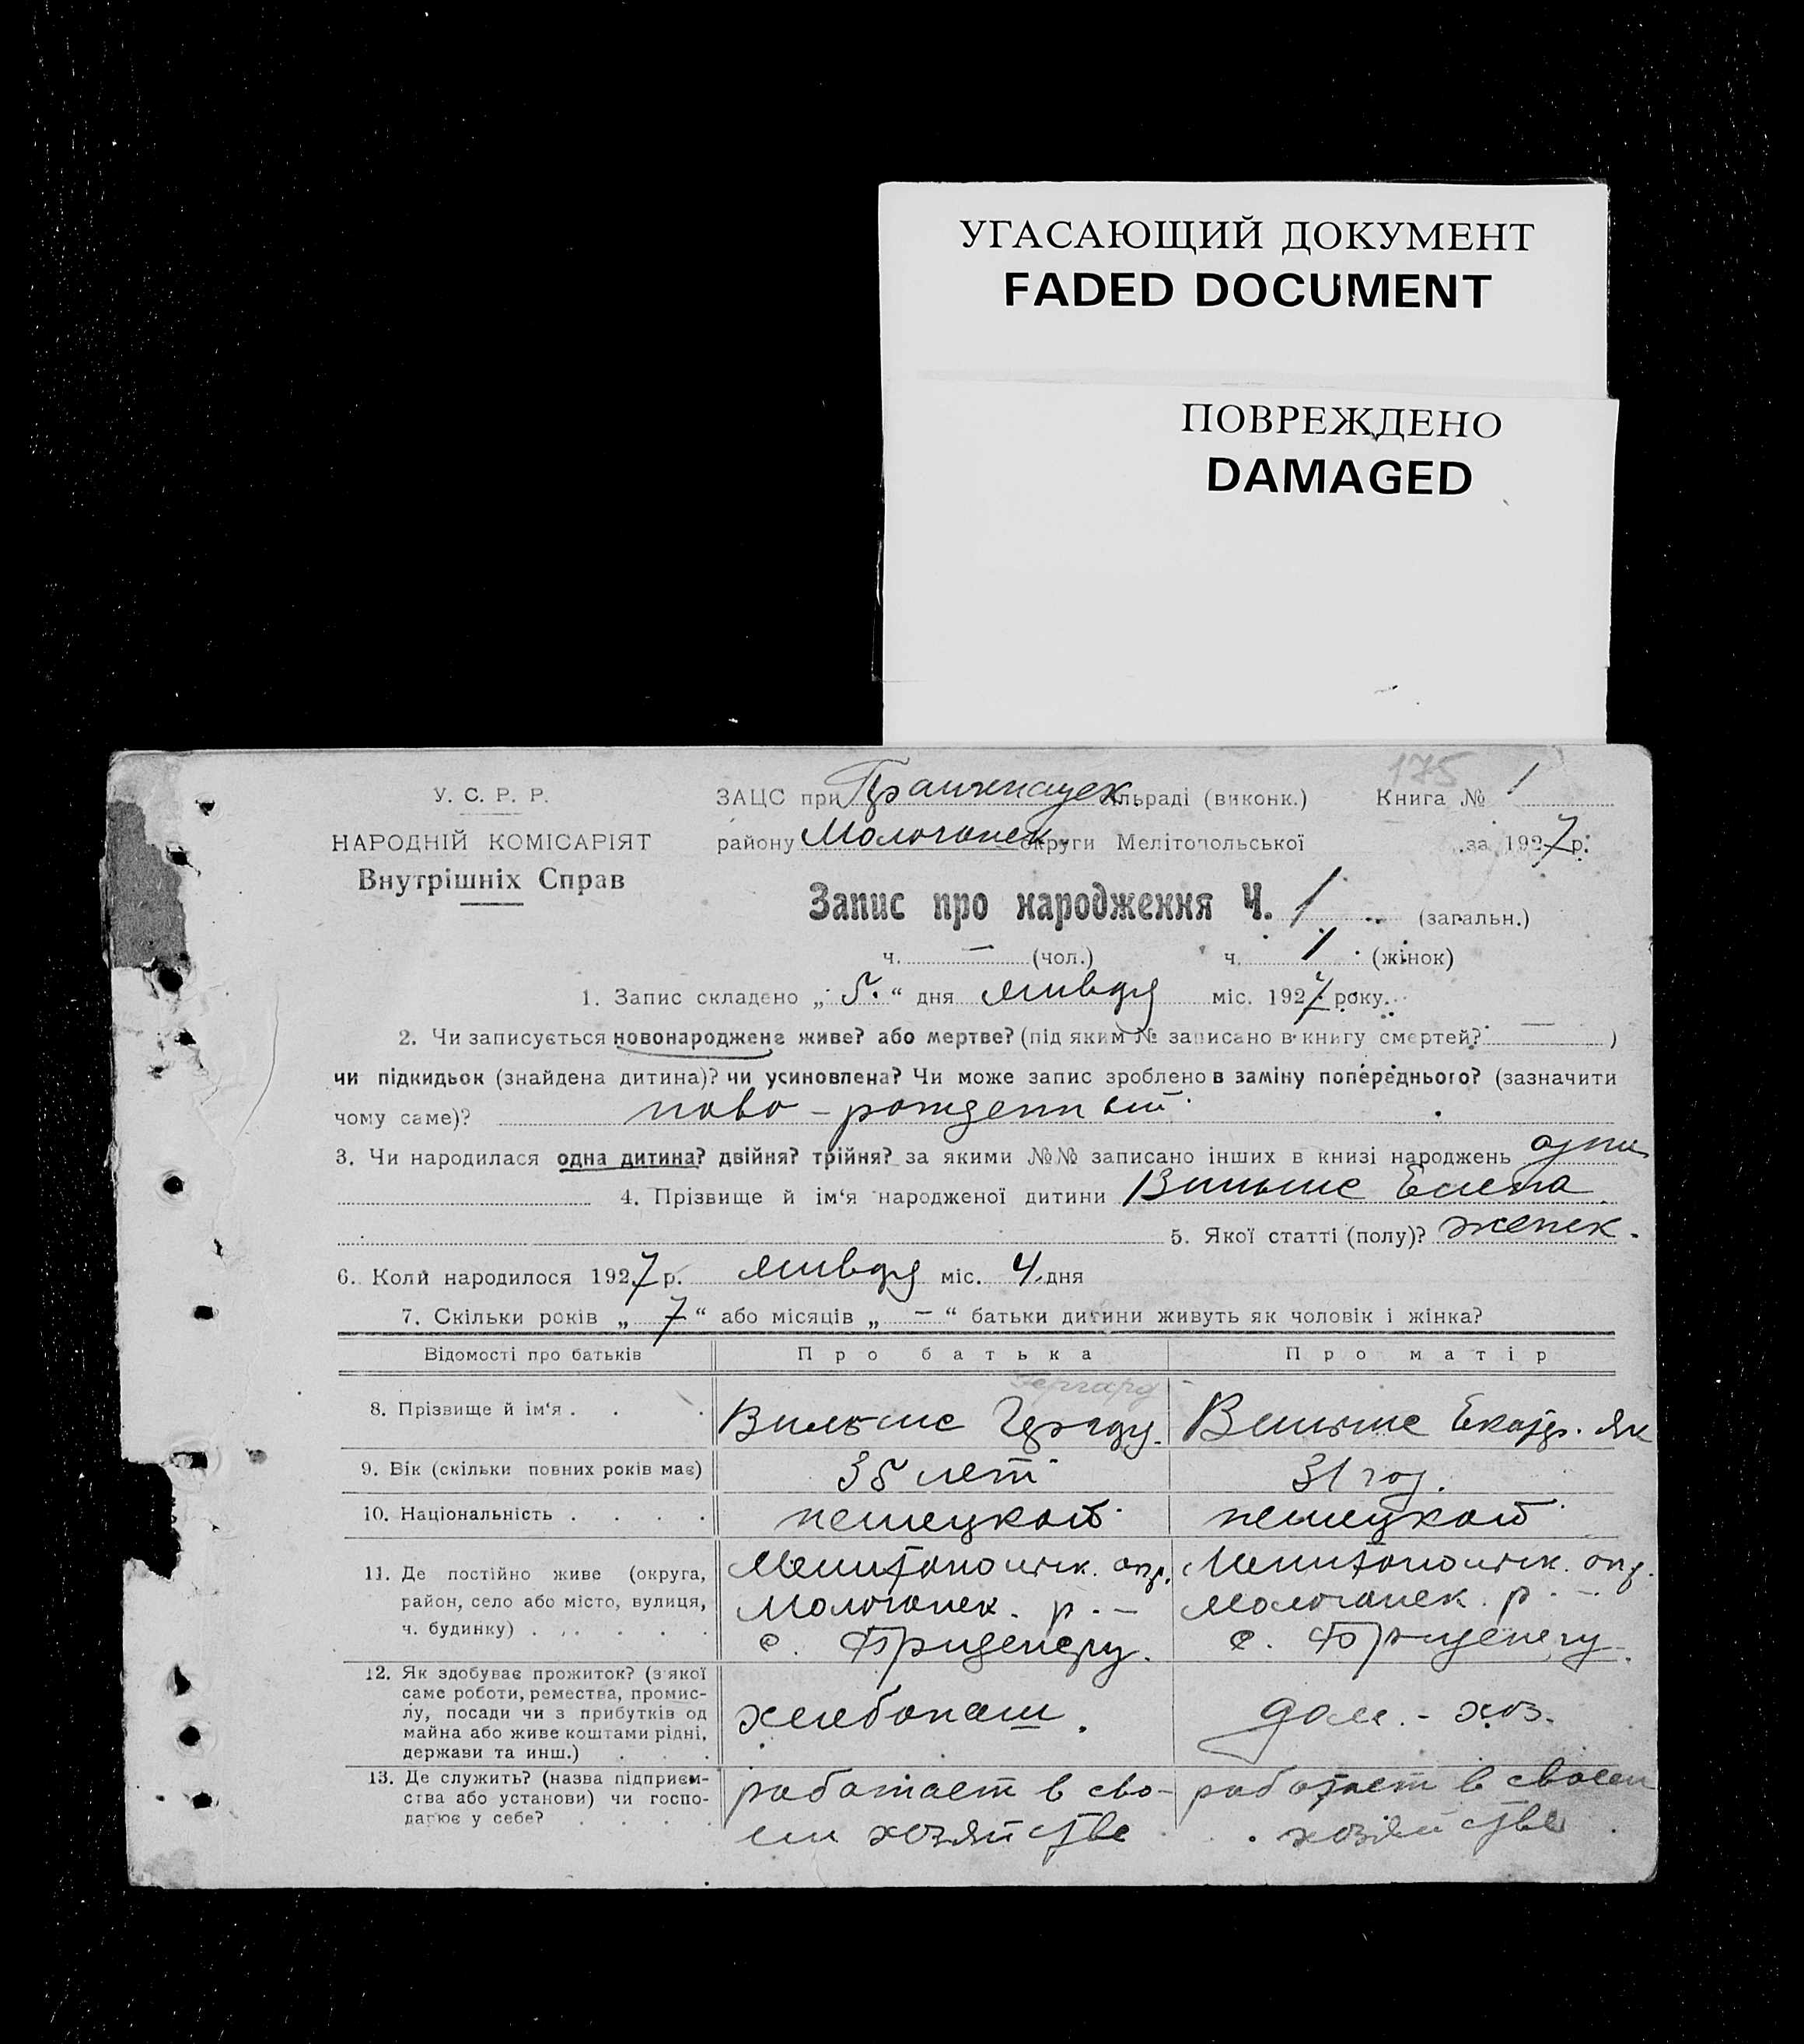 УГАСАЮЩИЙ ДОКУМЕНТ
FADED DOCUMENT
ПОВРЕЖДЕНО
DAMAGED
175
У. С. Р. Р.
НАРОДНІЙ КОМІСАРІЯТ
Внутрішніх Справ
ЗАЦС при сільраді (виконк.) Книга № 1
району Молочанск. округи Мелітопольської за 1927 р.
Запис про народження Ч. 1 (загальн.)
ч. — (чол.) ч. 1 (жінок)
1. Запис складено „ 5. “ дня январу міс. 1927 року.
2. Чи записується новонароджене живе? або мертве? (під яким № записано в книгу смертей? — )
чи підкидьок (знайдена дитина)? чи усиновлена? Чи може запис зроблено в заміну попереднього? (зазначити
чому саме)? ново-рожденный
3. Чи народилася одна дитина? двійня? трійня? за якими №№ записано інших в книзі народжень
4. Прізвище й ім‘я народженої дитини Вильмс Елена
5. Якої статті (полу)? женск.
6. Коли народилось 1927 р. январу міс. 4 дня
7. Скільки років „ 7 “ або місяців „ — “ батьки дитини живуть як чоловік і жінка?
Відомості про батьків Про батька Про матір
Гергард
8. Прізвище й ім‘я . . . Вильмс Вильмс Екатр. Як
9. Вік (скільки повних років має) 35 лет 31 год.
10. Національність . . . . немецкой немецкой
11. Де постійно живе (округа, Мелитопольск. окр. Мелитопольск. окр.
район, село або місто, вулиця, Молочанск. р. – Молочанск. р. –
ч. будинку) . . . . . . с. с.
12. Як здобуває прожиток? (з якої
саме роботи, ремества, промис-
лу, посади чи з прибутків од хлебопаш. дом.-хоз.
майна або живе коштами рідні,
держави та инш.) . . .
13. Де служить? (назва підприєм- работает в сво- работает в своем
ства або установи) чи госпо- ем хозяйстве хозяйстве
дарює у себе? . . . .